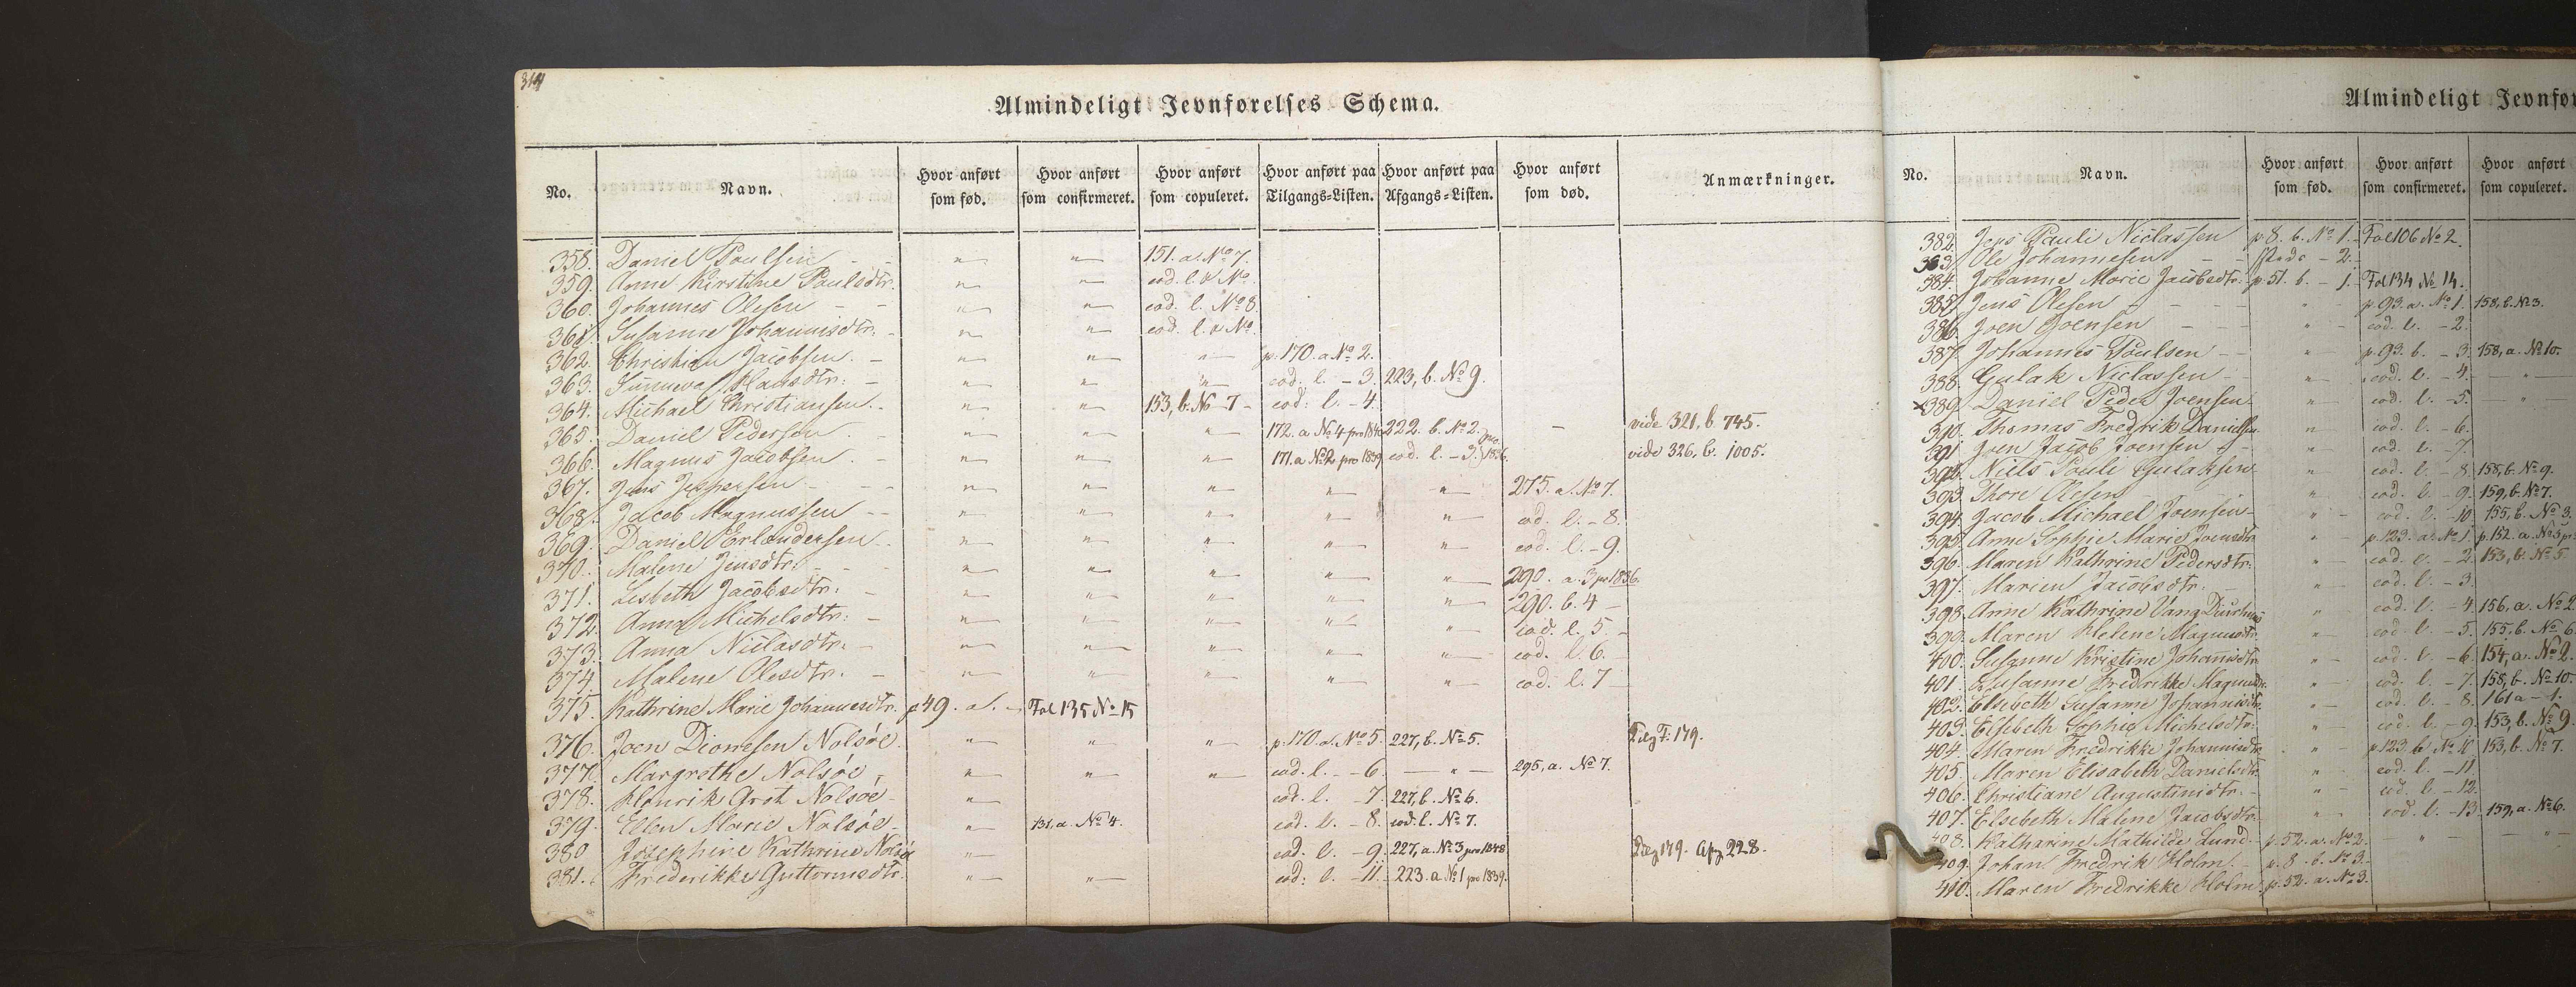 314
Almindeligt Jevnførelses Schema.
No. Navn. Hvor anført som fød. Hvor anført som confirmeret. Hvor anført som copuleret. Hvor anført paa Tilgangs-Listen. Hvor anført paa Afgangs-Listen. Hvor anført som død. Anmærkninger.
358. Daniel Poulsen - - " " 151. a. No 7.
359. Anne Kirstine Poulsdtr. " " eod. l. & No
360. Johannes Olesen - - " " eod. l. No 8.
361. Susanne Johannisdtr. - " " eod. l. & No.
362. Christian Jacobsen. - " " " p. 170. a No 2.
363. Sunneva Hansdtr: - " " " eod. l. - 3. 223, b. No 9.
364. Michael Christiansen. - " " 153, b. No 7 - eod: l. - 4.
365. Daniel Pedersen. - " " " 172. a No 4 pro 1840 222. b. No 2. - vide 321, b. 745.
366. Magnus Jacobsen. - " " " 171. a No 2 pro 1839 eod. l. - 3. pro 1836. vide 326, b. 1005.
367. Jens Jespersen - - " " " " " 275. a. No 7.
368. Jacob Magnussen - - " " " " " eod. l. - 8.
369. Daniel Erlandersen - " " " " " eod. l. - 9.
370. Malene Jensdtr: - - " " " " " 290. a. 3 pr 1836.
371. Lisbeth Jacobsdtr: - " " " " " 290. b. 4 -
372. Anna Michelsdtr: - " " " " " eod. l. 5. -
373. Anna Niclasdtr: - " " " " " eod. l. 6. -
374 Malene Olesdtr. - " " " " " eod. l. 7 -
375. Kathrine Marie Johannesdtr. p 49. a. - Fol 135 No 15
376. Joen Dionesen Nolsöe. " " " p. 170. a. No 5. 227, b. No 5. Tilg F. 179.
377. Margrethe Nolsöe, " " " eod. l. - 6. - " - 295, a. No 7.
378. Henrik Grot Nolsöe - " eod. l. - 7. 227, b. No 6.
379. Ellen Marie Nolsöe - " 131, a. No 4. eod. l. - 8. eod. l. No 7.
380 Josephine Kathrine Nolsöe " eod. l. - 9. 227, a. No 3 pro 1848 Tilg 179. Afg 228.
381. Frederikke Guttormsdtr. " " eod: l. - 11. 223. a No 1 pro 1839.
Almindeligt Jevnfør
No. Navn. Hvor anført som fød. Hvor anført som confirmeret. Hvor anført som copuleret.
382. Jens Pauli Niclassen p 8. b. No 1. Fol 106 No 2.
383. Ole Johannesen - - - 2. -
384. Johanne Marie Jacobsdtr. p. 51. b. - 1. Fol 134 No 14.
385. Jens Olesen - - - " - p. 93. a. No 1. 158, b. No 3.
386. Joen Joensen - - - " - eod. l. - 2.
387. Johannes Poulsen - - " p. 93. b. - 3. 158, a. No 10.
388. Gulak Niclassen - " eod. l. - 4. - " -
×389. Daniel Peder Joensen " eod. l. - 5. - " -
390. Thomas Fredrik Danielsen " eod. l. - 6.
391 Joen Jacob Joensen - " eod. l. - 7.
392. Niels Pauli Gulaksen " eod. l. - 8. 158, b. No 9.
393. Thore Olesen " eod. l. - 9. 159, b. No 7.
394. Jacob Michael Joensen - " - eod. l. - 10 155, b. No 3.
395. Anne Sophie Marie Joensdtr " - p. 123. a. No 1. p. 152. a. No 5
396. Maren Kathrine Pedersdtr. " - eod. l. - 2. 153, b. No 5.
397. Marien Jacobsdtr. - " - eod. l. - 3.
398. Anne Kathrine Vang " - eod. l. - 4. 156, a. No 2
399. Maren Helene Magnusdtr. " - eod. l. - 5. 155, b. No 6.
400. Susanne Kristine Johannisdtr. " - eod. l. - 6. 154, a. No 2.
401. Susanne Fredrikke Magnusdtr. " - eod. l. - 7. 158, b. No 10.
402. Elsebeth Susanne Johannisdtr. " - eod. l. - 8. 161 a - 1.
403. Elsebeth Sophie Michelsdtr. " - eod. l. - 9. 153, b. No 9.
404. Maren Fredrikke Johannisdtr. " - p 123. b No 10 153, b. No 7.
405. Maren Elisabeth Danielsdtr. " - eod. l. - 11.
406. Christiane Augustinidtr. - " - eod. l. - 12.
407. Elsebeth Malene Jacobsdtr. " - eod. l. - 13. 159, a. No 6.
408. Katharine Mathilde Lund - p. 52. a. No 2. " - - " -
409. Johan Fredrik Holm. - p. 8. b. No 3. -
410. Maren Fredrikke Holm. p. 52. a. No 3.